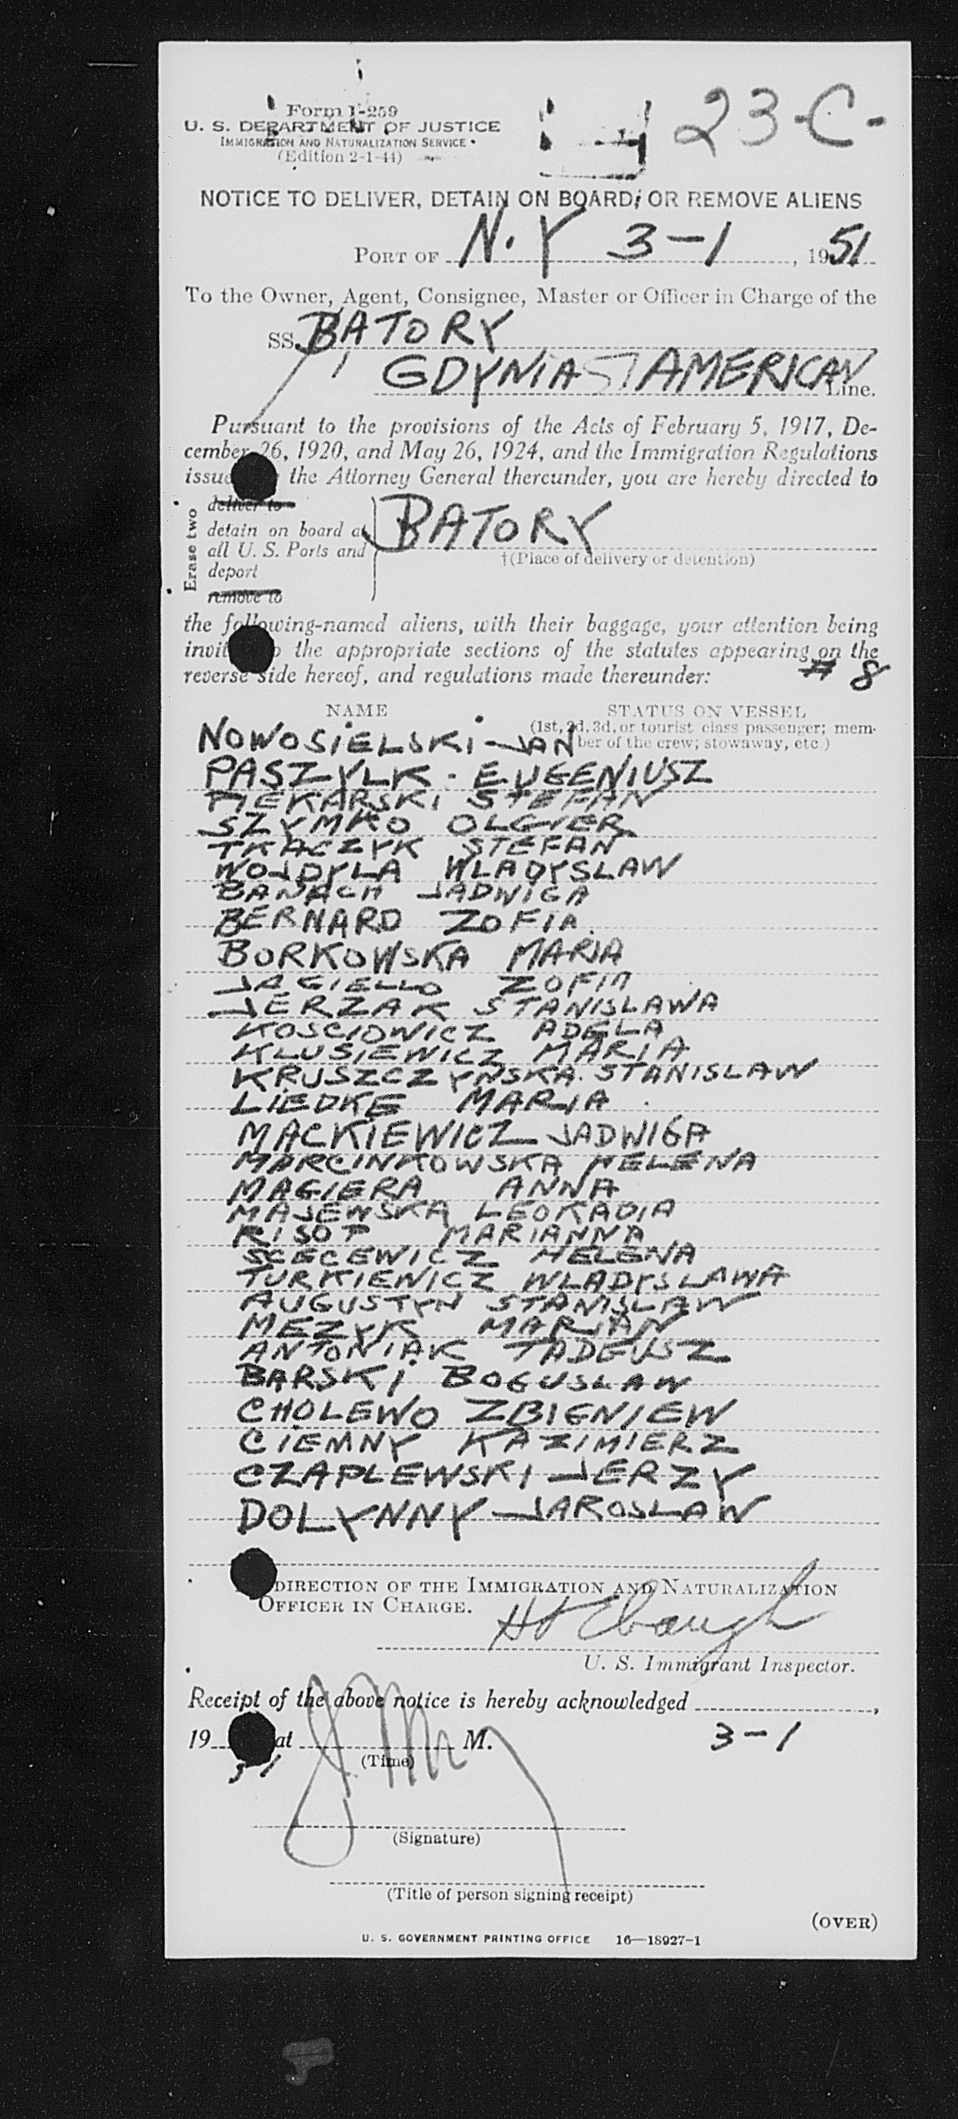 Form I-259
U. S. DEPARTMENT OF JUSTICE
IMMIGRATION AND NATURALIZATION SERVICE
(Edition 2-1-44)
23-C-
NOTICE TO DELIVER, DETAIN ON BOARD, OR REMOVE ALIENS
PORT OF N. Y 3-1, 1951
To the Owner, Agent, Consignee, Master or Officer in Charge of the
SS. BATORY
GDYNIA AMERICAN Line.
Pursuant to the provisions of the Acts of February 5, 1917, De-
cember 26, 1920, and May 26, 1924, and the Immigration Regulations
issued the Attorney General thereunder, you are hereby directed to
Erase two
deliver to
detain on board at
all U. S. Ports and
deport
remove to
BATORY
†(Place of delivery or detention)
the following-named aliens, with their baggage, your attention being
invit to the appropriate sections of the statutes appearing on the
reverse side hereof, and regulations made thereunder: # 8
NAME STATUS ON VESSEL
(1st, 2d, 3d, or tourist class passenger; mem-
ber of the crew; stowaway, etc.)
NOWOSIELSKI - JAN
PASZYLK - EUGENIUSZ
PIEKARSKI STEFAN
SZYMKO OLGIER
TKACZYK STEFAN
WOJDYLA WLADYSLAW
BANACH JADWIGA
BERNARD ZOFIA
BORKOWSKA MARIA
JAGIELLO ZOFIA
JERZAK STANISLAWA
KOSCIOWICZ ADELA
KLUSIEWICZ MARIA
KRUSZCZYNSKA STANISLAW
LIEDKE MARIA
MACKIEWICZ JADWIGA
MARCINKOWSKA HELENA
MAGIERA ANNA
MAJEWSKA LEOKADIA
RISOP MARIANNA
SCECEWICZ HELENA
TURKIEWICZ WLADYSLAWA
AUGUSTYN STANISLAW
MEZYK MARIAN
ANTONIAK TADEUSZ
BARSKI BOGUSLAW
CHOLEWO ZBIGNIEW
CIEMNY KAZIMIERZ
CZAPLEWSKI JERZY
DOLYNNY JAROSLAW
DIRECTION OF THE IMMIGRATION AND NATURALIZATION
OFFICER IN CHARGE.
U. S. Immigrant Inspector.
Receipt of the above notice is hereby acknowledged
19 at M. 3-1
(Time)
(Signature)
(Title of person signing receipt)
(OVER)
U. S. GOVERNMENT PRINTING OFFICE 16—18927-1